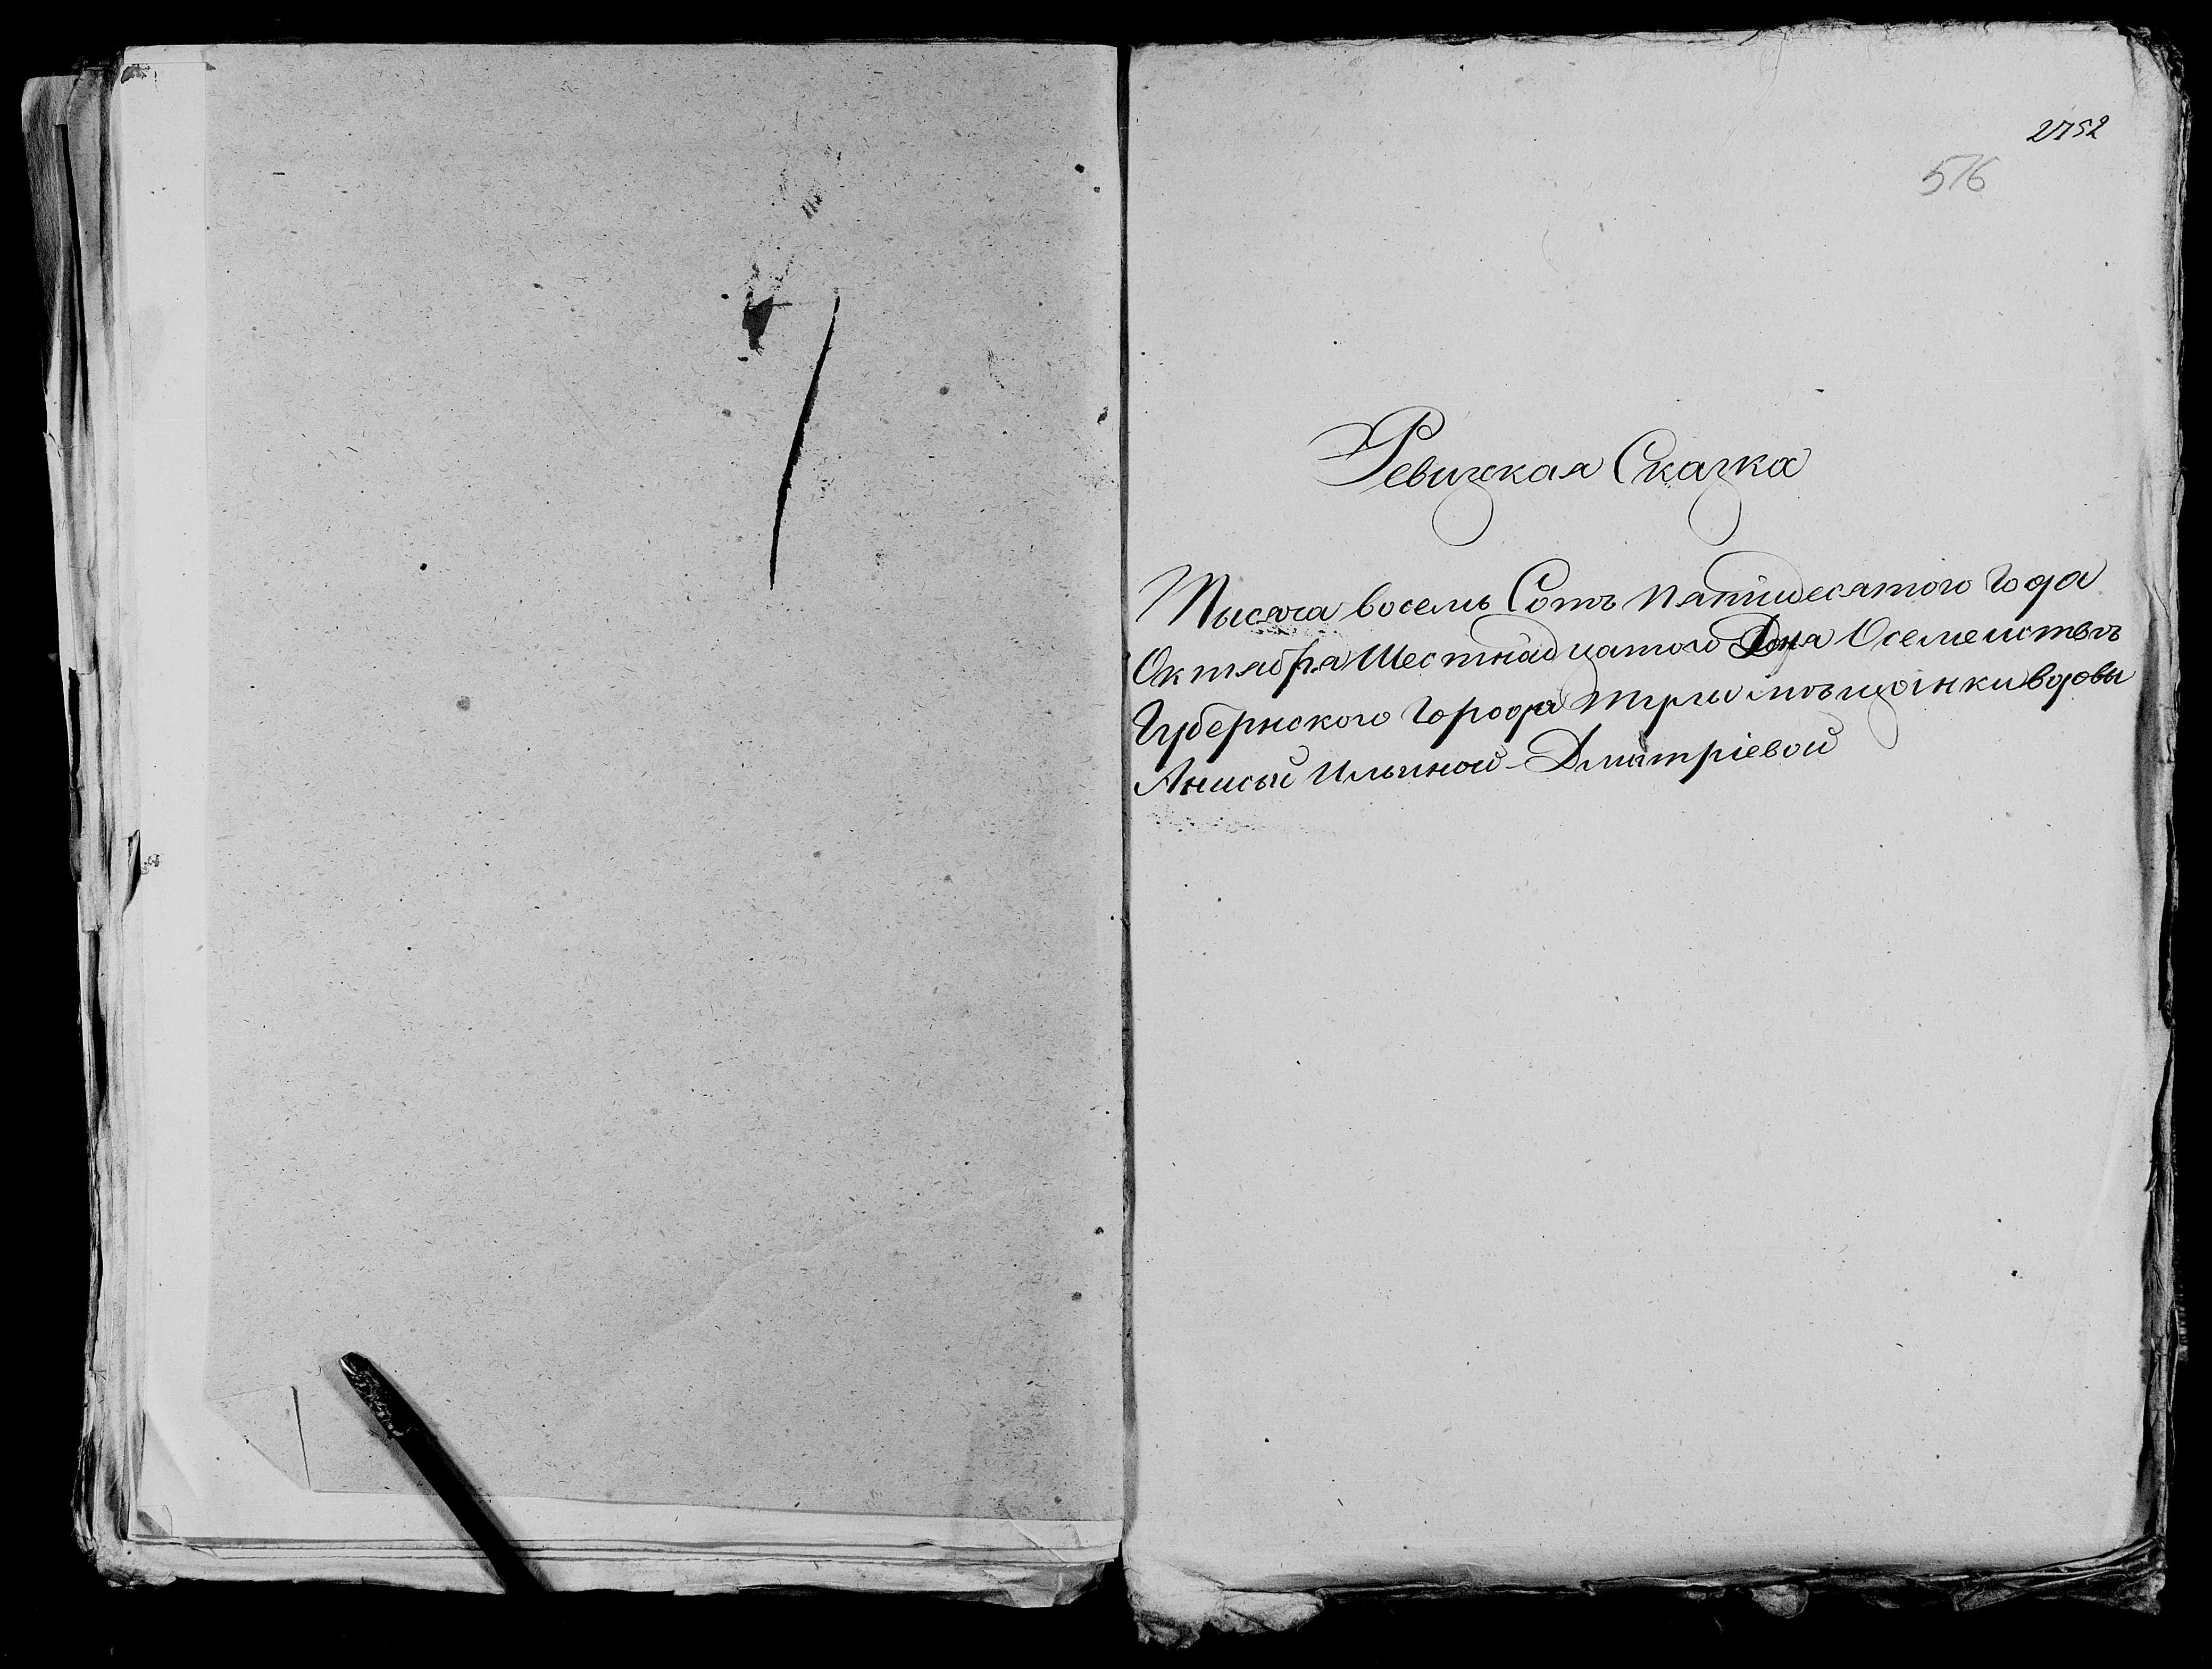 2752
576
Ревизкая Сказка
Тысяча восемь Сотъ пятидесятого года
Октября Шестнадцатого Дня Осемействъ
Губернского города Тулы мѣщанки вдовы
Анисьи Ильиной Дмитріевой